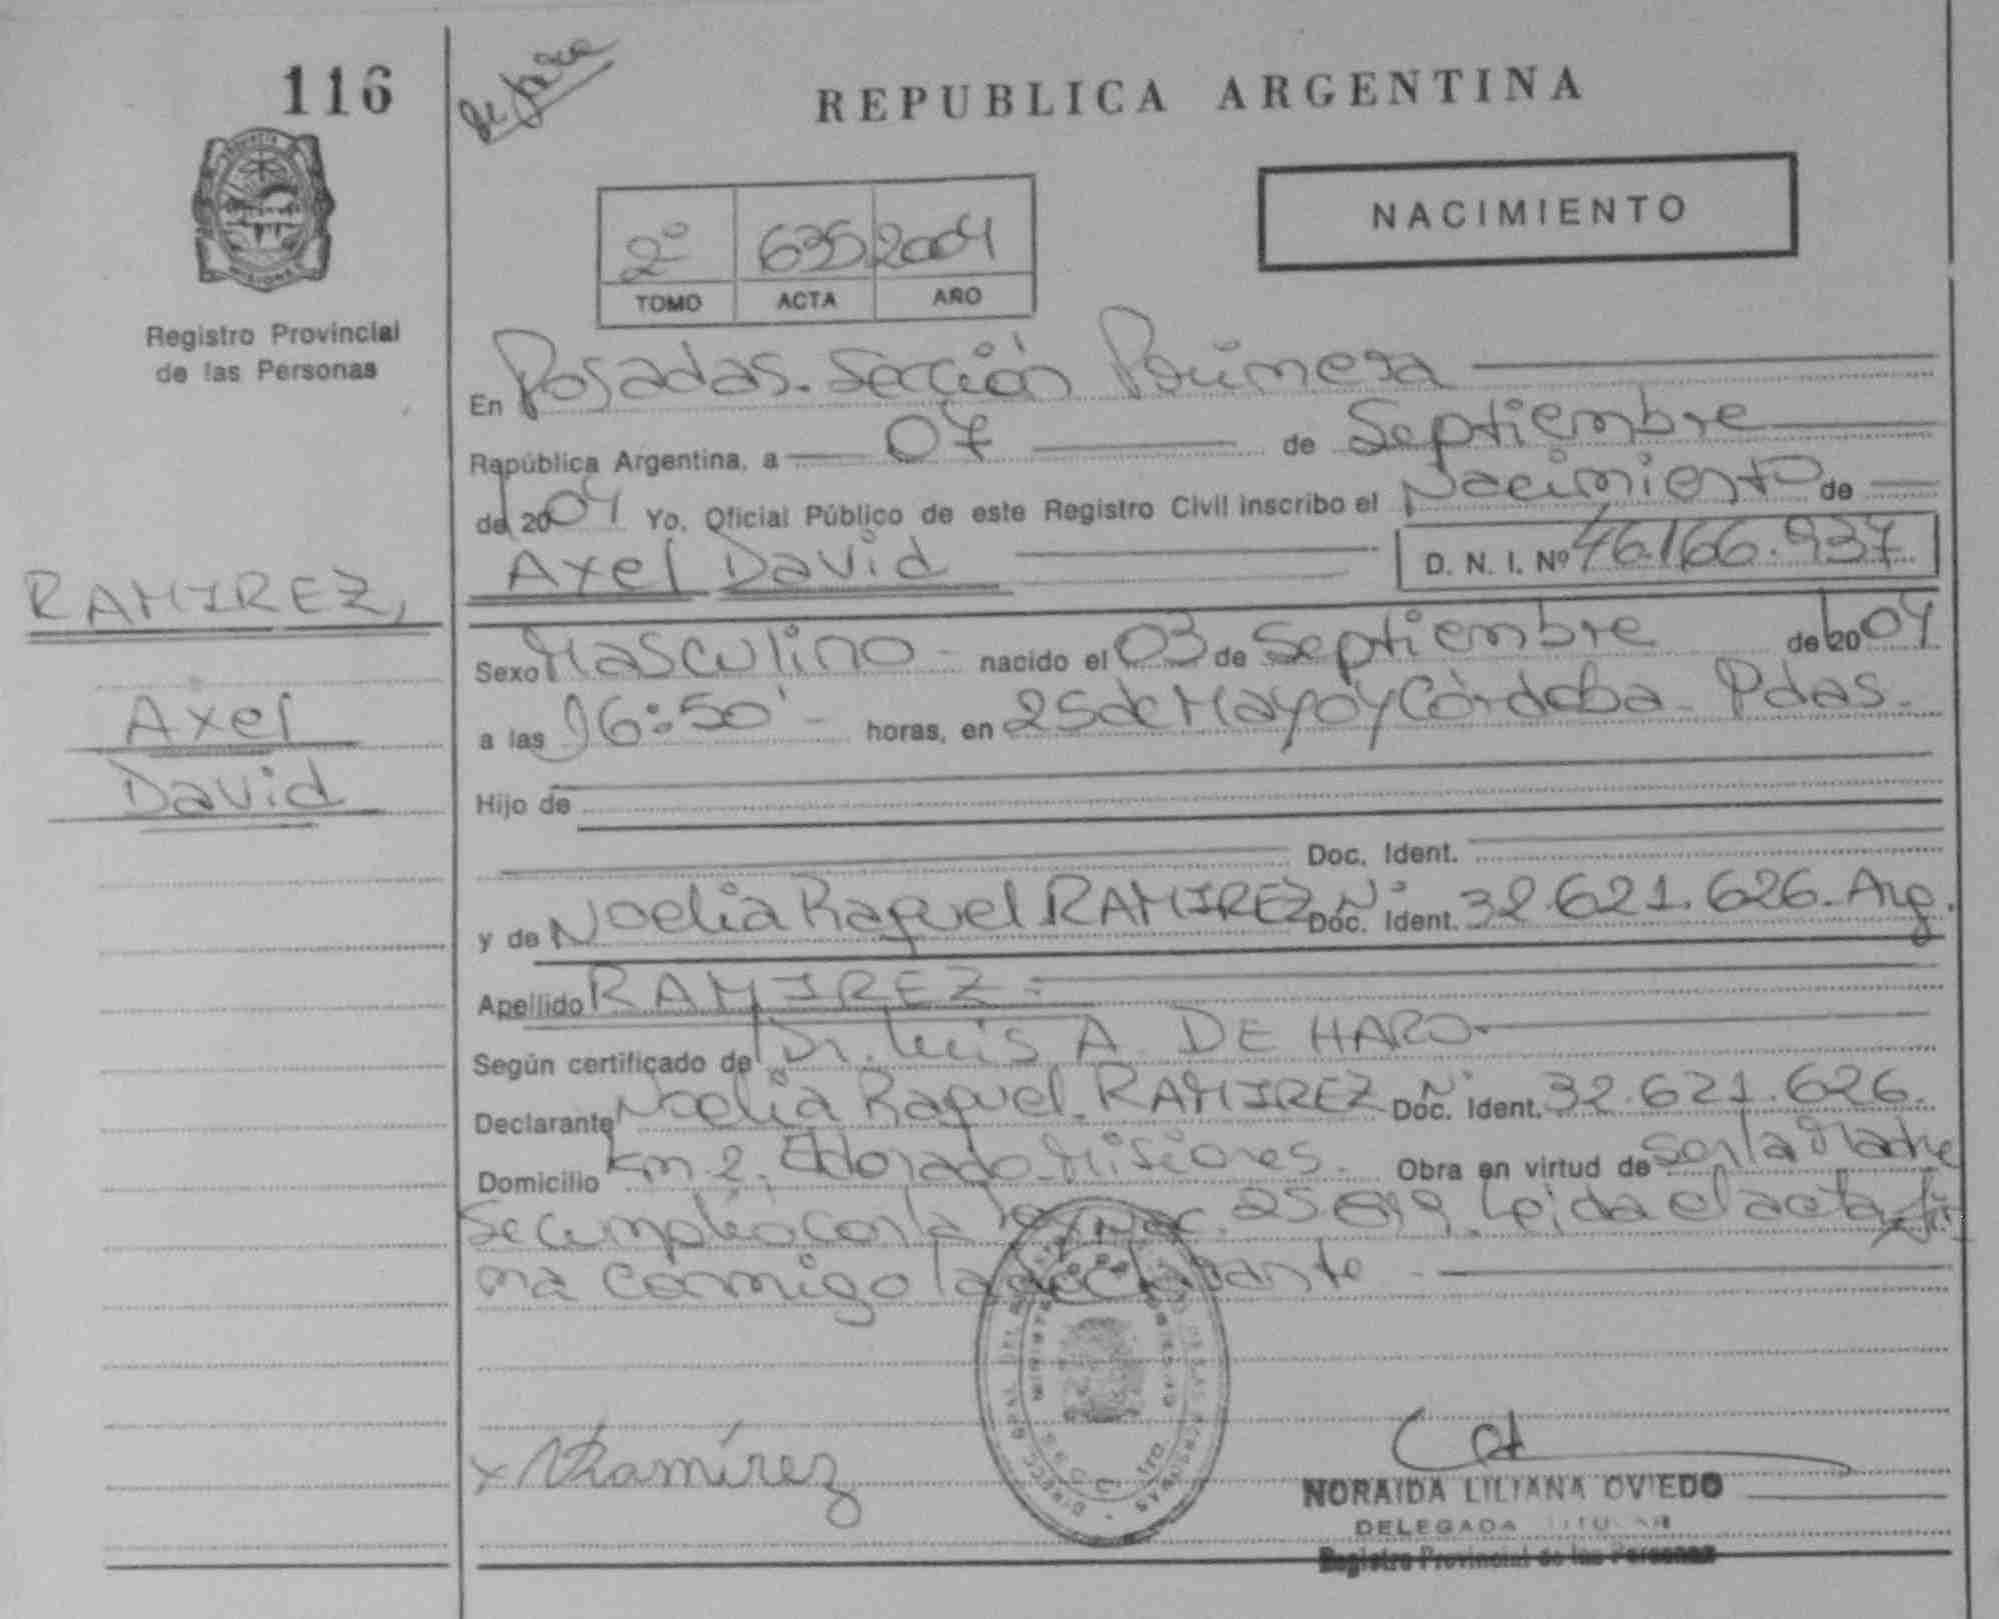 116
REPUBLICA ARGENTINA
NACIMIENTO
2º 635 2004
TOMO ACTA AÑO
Registro Provincial
de las Personas
En Posadas. Sección Primera
República Argentina, a 07 de Septiembre
de 2004 Yo, Oficial Público de este Registro Civil inscribo el Nacimiento de
Axel David D. N. I. Nº 46.166.937
RAMIREZ,
Axel
David
Sexo Masculino - nacido el 03 de Septiembre de 2004
a las 16:50' - horas, en 25 de Mayo y Córdoba - Pdas.
Hijo de
Doc. Ident.
y de Noelia Raquel RAMIREZ Nº Doc. Ident. 32.621.626. Arg.
Apellido RAMIREZ
Según certificado de Dr. Luis A. DE HARO
Declarante Noelia Raquel. RAMIREZ Nº Doc. Ident. 32.621.626.
Domicilio Km 2. Eldorado Misiones. Obra en virtud de ser la Madre
Se cumplió con la Ley Nac. Leida el acta fir
ma conmigo la declarante
x NRamírez
NORAIDA LILIANA OVIEDO
DELEGADA TITULAR
Registro Provincial de las Personas